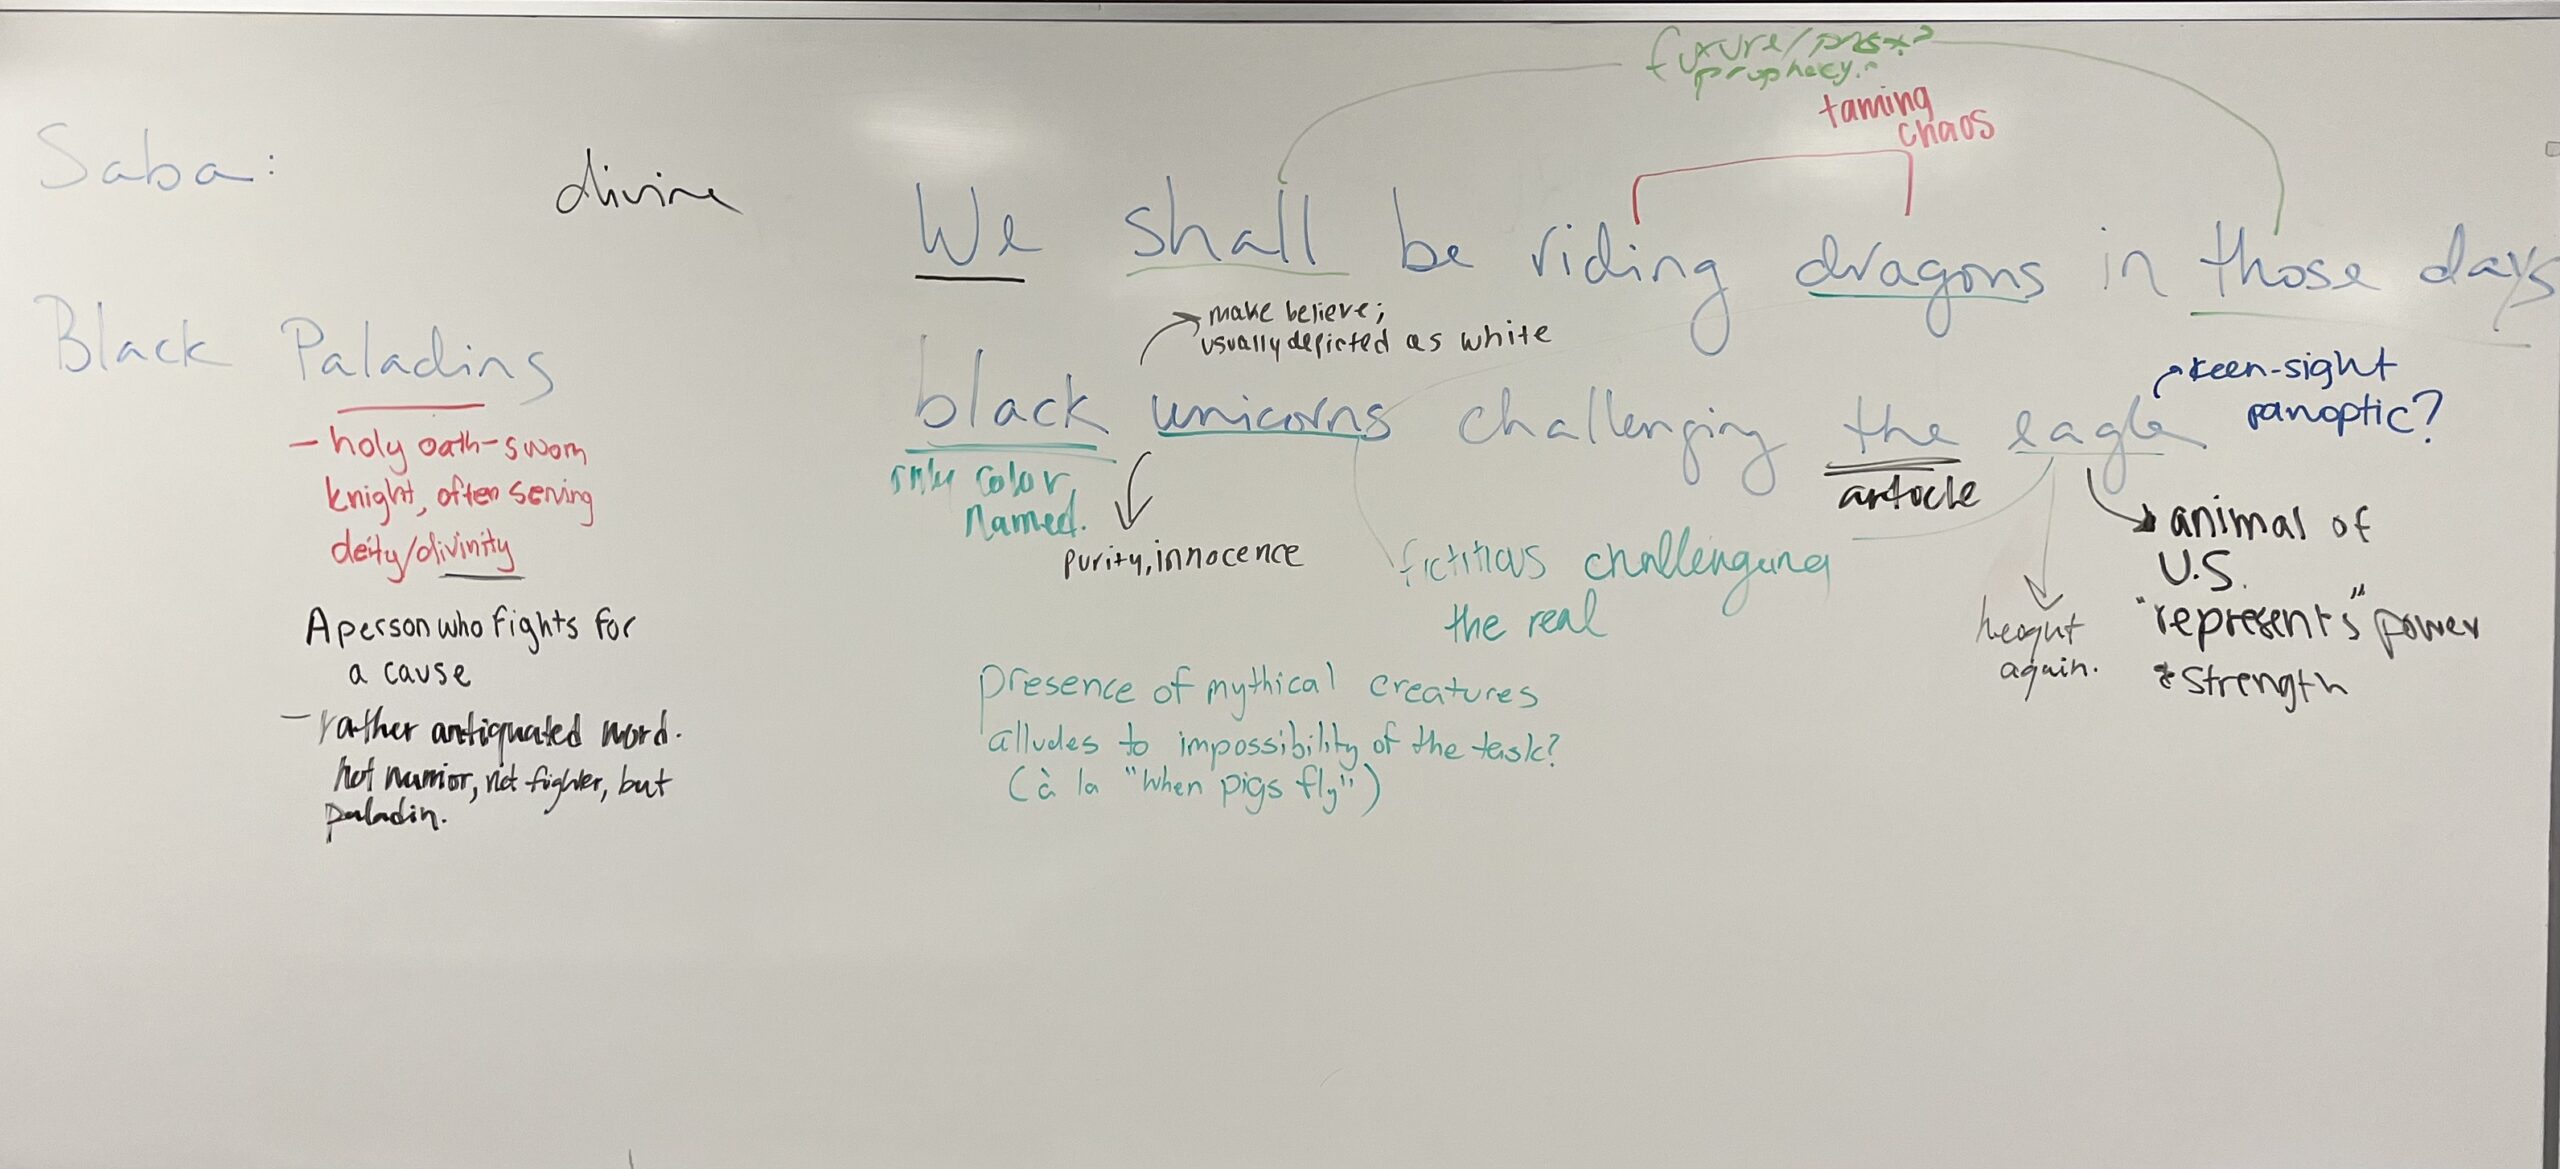 future/past?
prophecy?
taming
chaos
Saba:
divine
We shall be riding dragons in those days
make believe;
usually depicted as white
Black Paladins
black unicorns challenging the eagle
keen-sight
panoptic?
- holy oath-sworn
knight, often serving
deity/divinity
only color
named.
purity, innocence
article
fictitious challenging
the real
animal of
U.S.
"represents" power
& strength
again.
A person who fights for
a cause
- rather antiquated word.
not warrior, not fighter, but
paladin.
presence of mythical creatures
alludes to impossibility of the task?
(à la "when pigs fly")